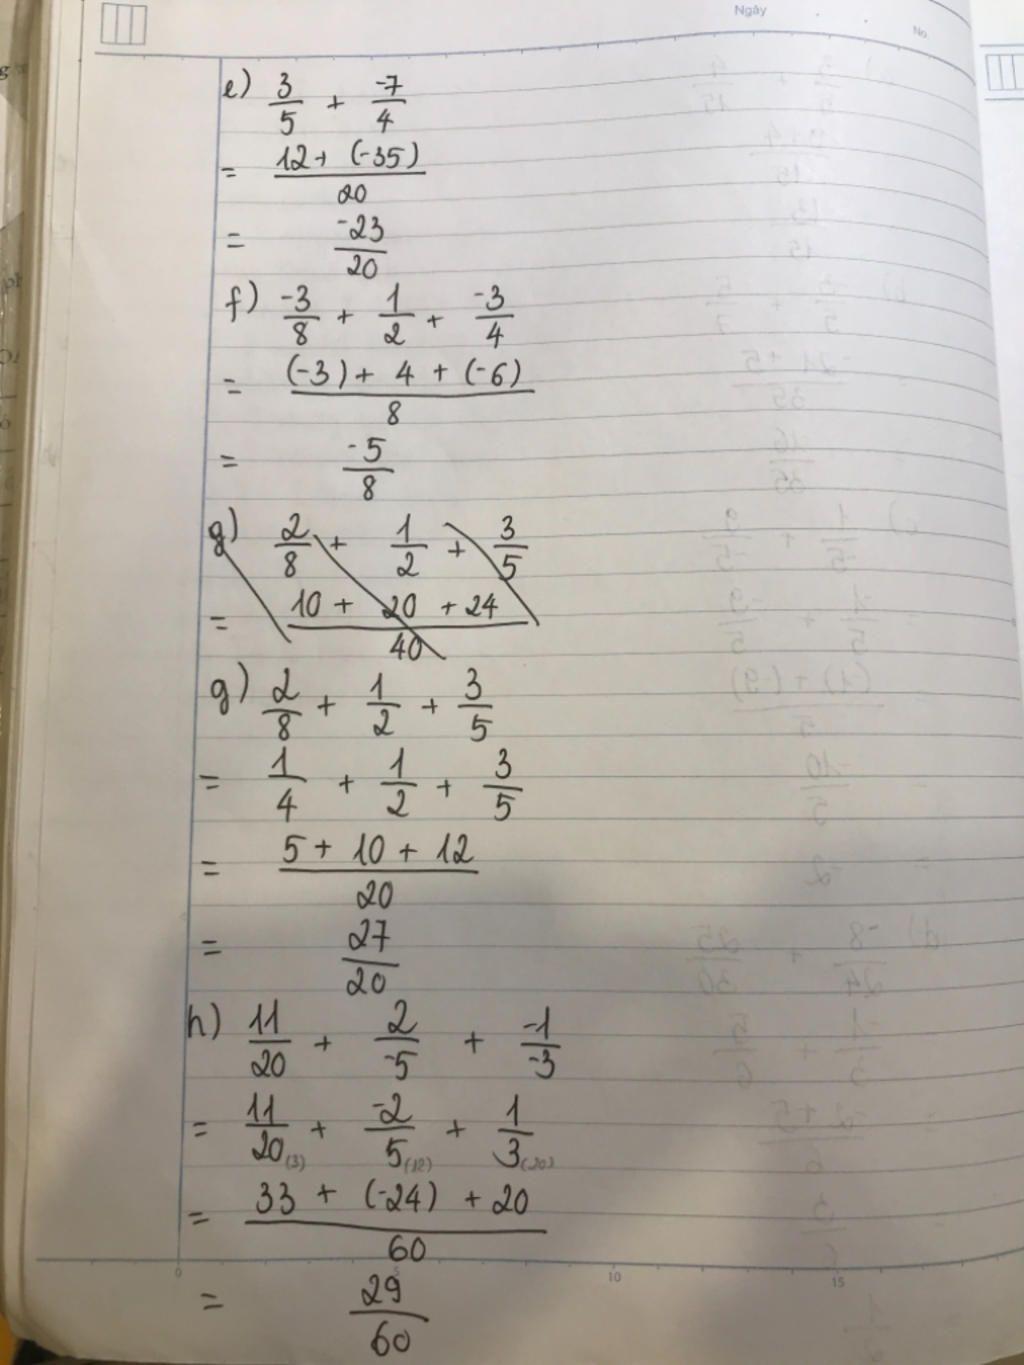 Ngày
No.
e) 3/5 + -7/4
= 12 + (-35)/20
= -23/20
f) -3/8 + 1/2 + -3/4
= (-3) + 4 + (-6)/8
= -5/8
g) 2/8 + 1/2 + 3/5
= 10 + 20 + 24/40
g) 2/8 + 1/2 + 3/5
= 1/4 + 1/2 + 3/5
= 5 + 10 + 12/20
= 27/20
h) 11/20 + 2/-5 + -1/-3
= 11/20(3) + -2/5(12) + 1/3(20)
= 33 + (-24) + 20/60
0 5 10 15
= 29/60